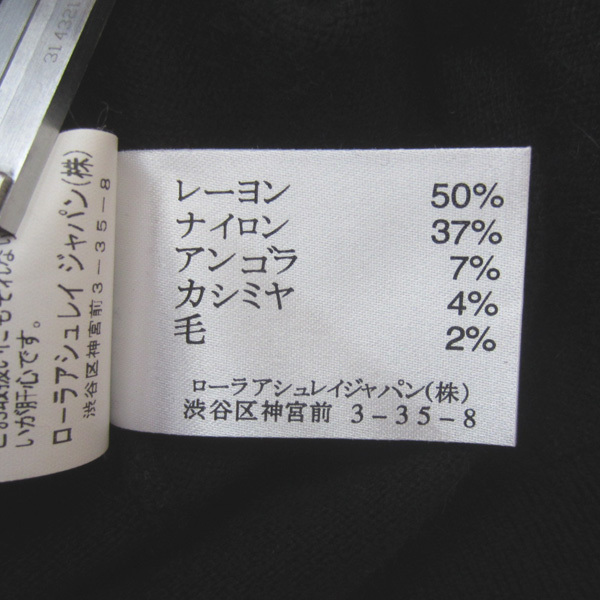 レーヨン 50%
ナイロン 37%
アンゴラ 7%
カシミヤ 4%
毛 2%
ローラアシュレイジャパン(株)
渋谷区神宮前 3-35-8
いが肝心です。
ローラアシュレイ ジャパン(株)
渋谷区神宮前3-35-8
314321